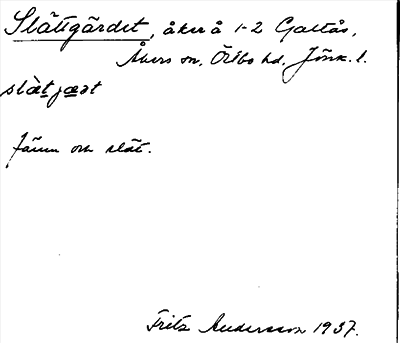 Slättgärdet, åker å 1-2 Galtås,
Åkers sn, Östbo hd, Jönk. l.
slæ̀t jæət
Jämn och slät.
Fritz Andersson 1937.